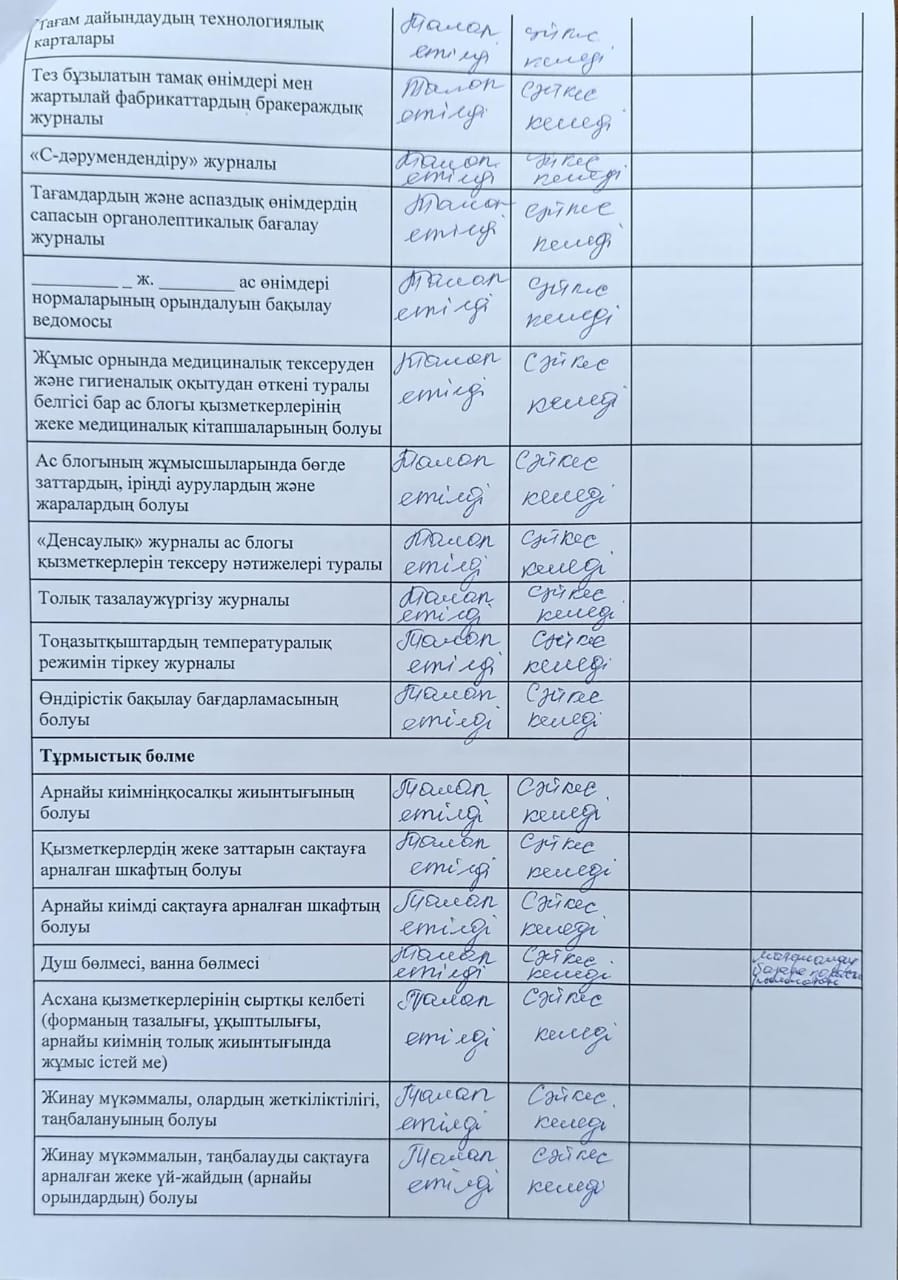 Тағам дайындаудың технологиялық
карталары
Талап
етілді
сәйкес
келеді
Тез бұзылатын тамақ өнімдері мен
жартылай фабрикаттардың бракераждық
журналы
Талап
етілді
сәйкес
келеді
«С-дәрумендендіру» журналы
Талап
етілді
сәйкес
келеді
Тағамдардың және аспаздық өнімдердің
сапасын органолептикалық бағалау
журналы
Талап
етілді
сәйкес
келеді
__________ _ ж. ________ ас өнімдері
нормаларының орындалуын бақылау
ведомосы
Талап
етілді
сәйкес
келеді
Жұмыс орнында медициналық тексеруден
және гигиеналық оқытудан өткені туралы
белгісі бар ас блогы қызметкерлерінің
жеке медициналық кітапшаларының болуы
Талап
етілді
сәйкес
келеді
Ас блогының жұмысшыларында бөгде
заттардың, іріңді аурулардың және
жаралардың болуы
Талап
етілді
Сәйкес
келеді
«Денсаулық» журналы ас блогы
қызметкерлерін тексеру нәтижелері туралы
Талап
етілді
сәйкес
келеді
Толық тазалаужүргізу журналы
Талап
етілді
сәйкес
келеді
Тоңазытқыштардың температуралық
режимін тіркеу журналы
Талап
етілді
Сәйкес
келеді
Өндірістік бақылау бағдарламасының
болуы
Талап
етілді
Сәйкес
келеді
Тұрмыстық бөлме
Арнайы киімніңқосалқы жиынтығының
болуы
Талап
етілді
Сәйкес
келеді
Қызметкерлердің жеке заттарын сақтауға
арналған шкафтың болуы
Талап
етілді
Сәйкес
келеді
Арнайы киімді сақтауға арналған шкафтың
болуы
Талап
етілді
Сәйкес
келеді
Душ бөлмесі, ванна бөлмесі
Талап
етілді
Сәйкес
келеді
Асхана қызметкерлерінің сыртқы келбеті
(форманың тазалығы, ұқыптылығы,
арнайы киімнің толық жиынтығында
жұмыс істей ме)
Талап
етілді
Сәйкес
келеді
Жинау мүкәммалы, олардың жеткіліктілігі,
таңбалануының болуы
Талап
етілді
Сәйкес
келеді
Жинау мүкәммалын, таңбалауды сақтауға
арналған жеке үй-жайдың (арнайы
орындардың) болуы
Талап
етілді
Сәйкес
келеді